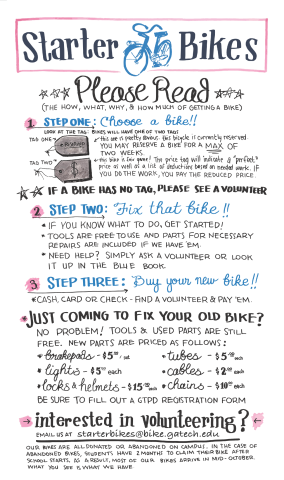 Starter Bikes
Please Read
(THE HOW, WHAT, WHY, & HOW MUCH OF GETTING A BIKE)
1 STEP ONE: Choose a bike!!
LOOK AT THE TAG: BIKES WILL HAVE ONE OF TWO TAGS:
TAG ONE
this one is pretty obvious. this bicycle is currently reserved.
YOU MAY RESERVE A BIKE FOR A MAX OF
TWO WEEKS.
TAG TWO
this bike is fair game! The price tag will indicate a "perfect"
price as well as a list of deductions based on needed work. IF
YOU DO THE WORK, YOU PAY THE REDUCED PRICE.
IF A BIKE HAS NO TAG, PLEASE SEE A VOLUNTEER
2 STEP TWO: Fix that bike!!
* IF YOU KNOW WHAT TO DO, GET STARTED!
* TOOLS ARE FREE TO USE AND PARTS FOR NECESSARY
REPAIRS ARE INCLUDED IF WE HAVE 'EM.
* NEED HELP? SIMPLY ASK A VOLUNTEER OR LOOK
IT UP IN THE BLUE BOOK.
3 STEP THREE: Buy your new bike!!
* CASH, CARD OR CHECK - FIND A VOLUNTEER & PAY 'EM.
* JUST COMING TO FIX YOUR OLD BIKE?
NO PROBLEM! TOOLS & USED PARTS ARE STILL
FREE. NEW PARTS ARE PRICED AS FOLLOWS:
* brakepads - $5.00 / set * tubes - $5.00 each
* lights - $5.00 each * cables - $2.00 each
* locks & helmets - $15.00 each * chains - $10.00 each
BE SURE TO FILL OUT A GTPD REGISTRATION FORM
interested in volunteering?
EMAIL US AT starterbikes@bike.gatech.edu
OUR BIKES ARE ALL DONATED OR ABANDONED ON CAMPUS. IN THE CASE OF
ABANDONED BIKES, STUDENTS HAVE 2 MONTHS TO CLAIM THEIR BIKE AFTER
SCHOOL STARTS, AS A RESULT, MOST OF OUR BIKES ARRIVE IN MID-OCTOBER.
WHAT YOU SEE IS WHAT WE HAVE.